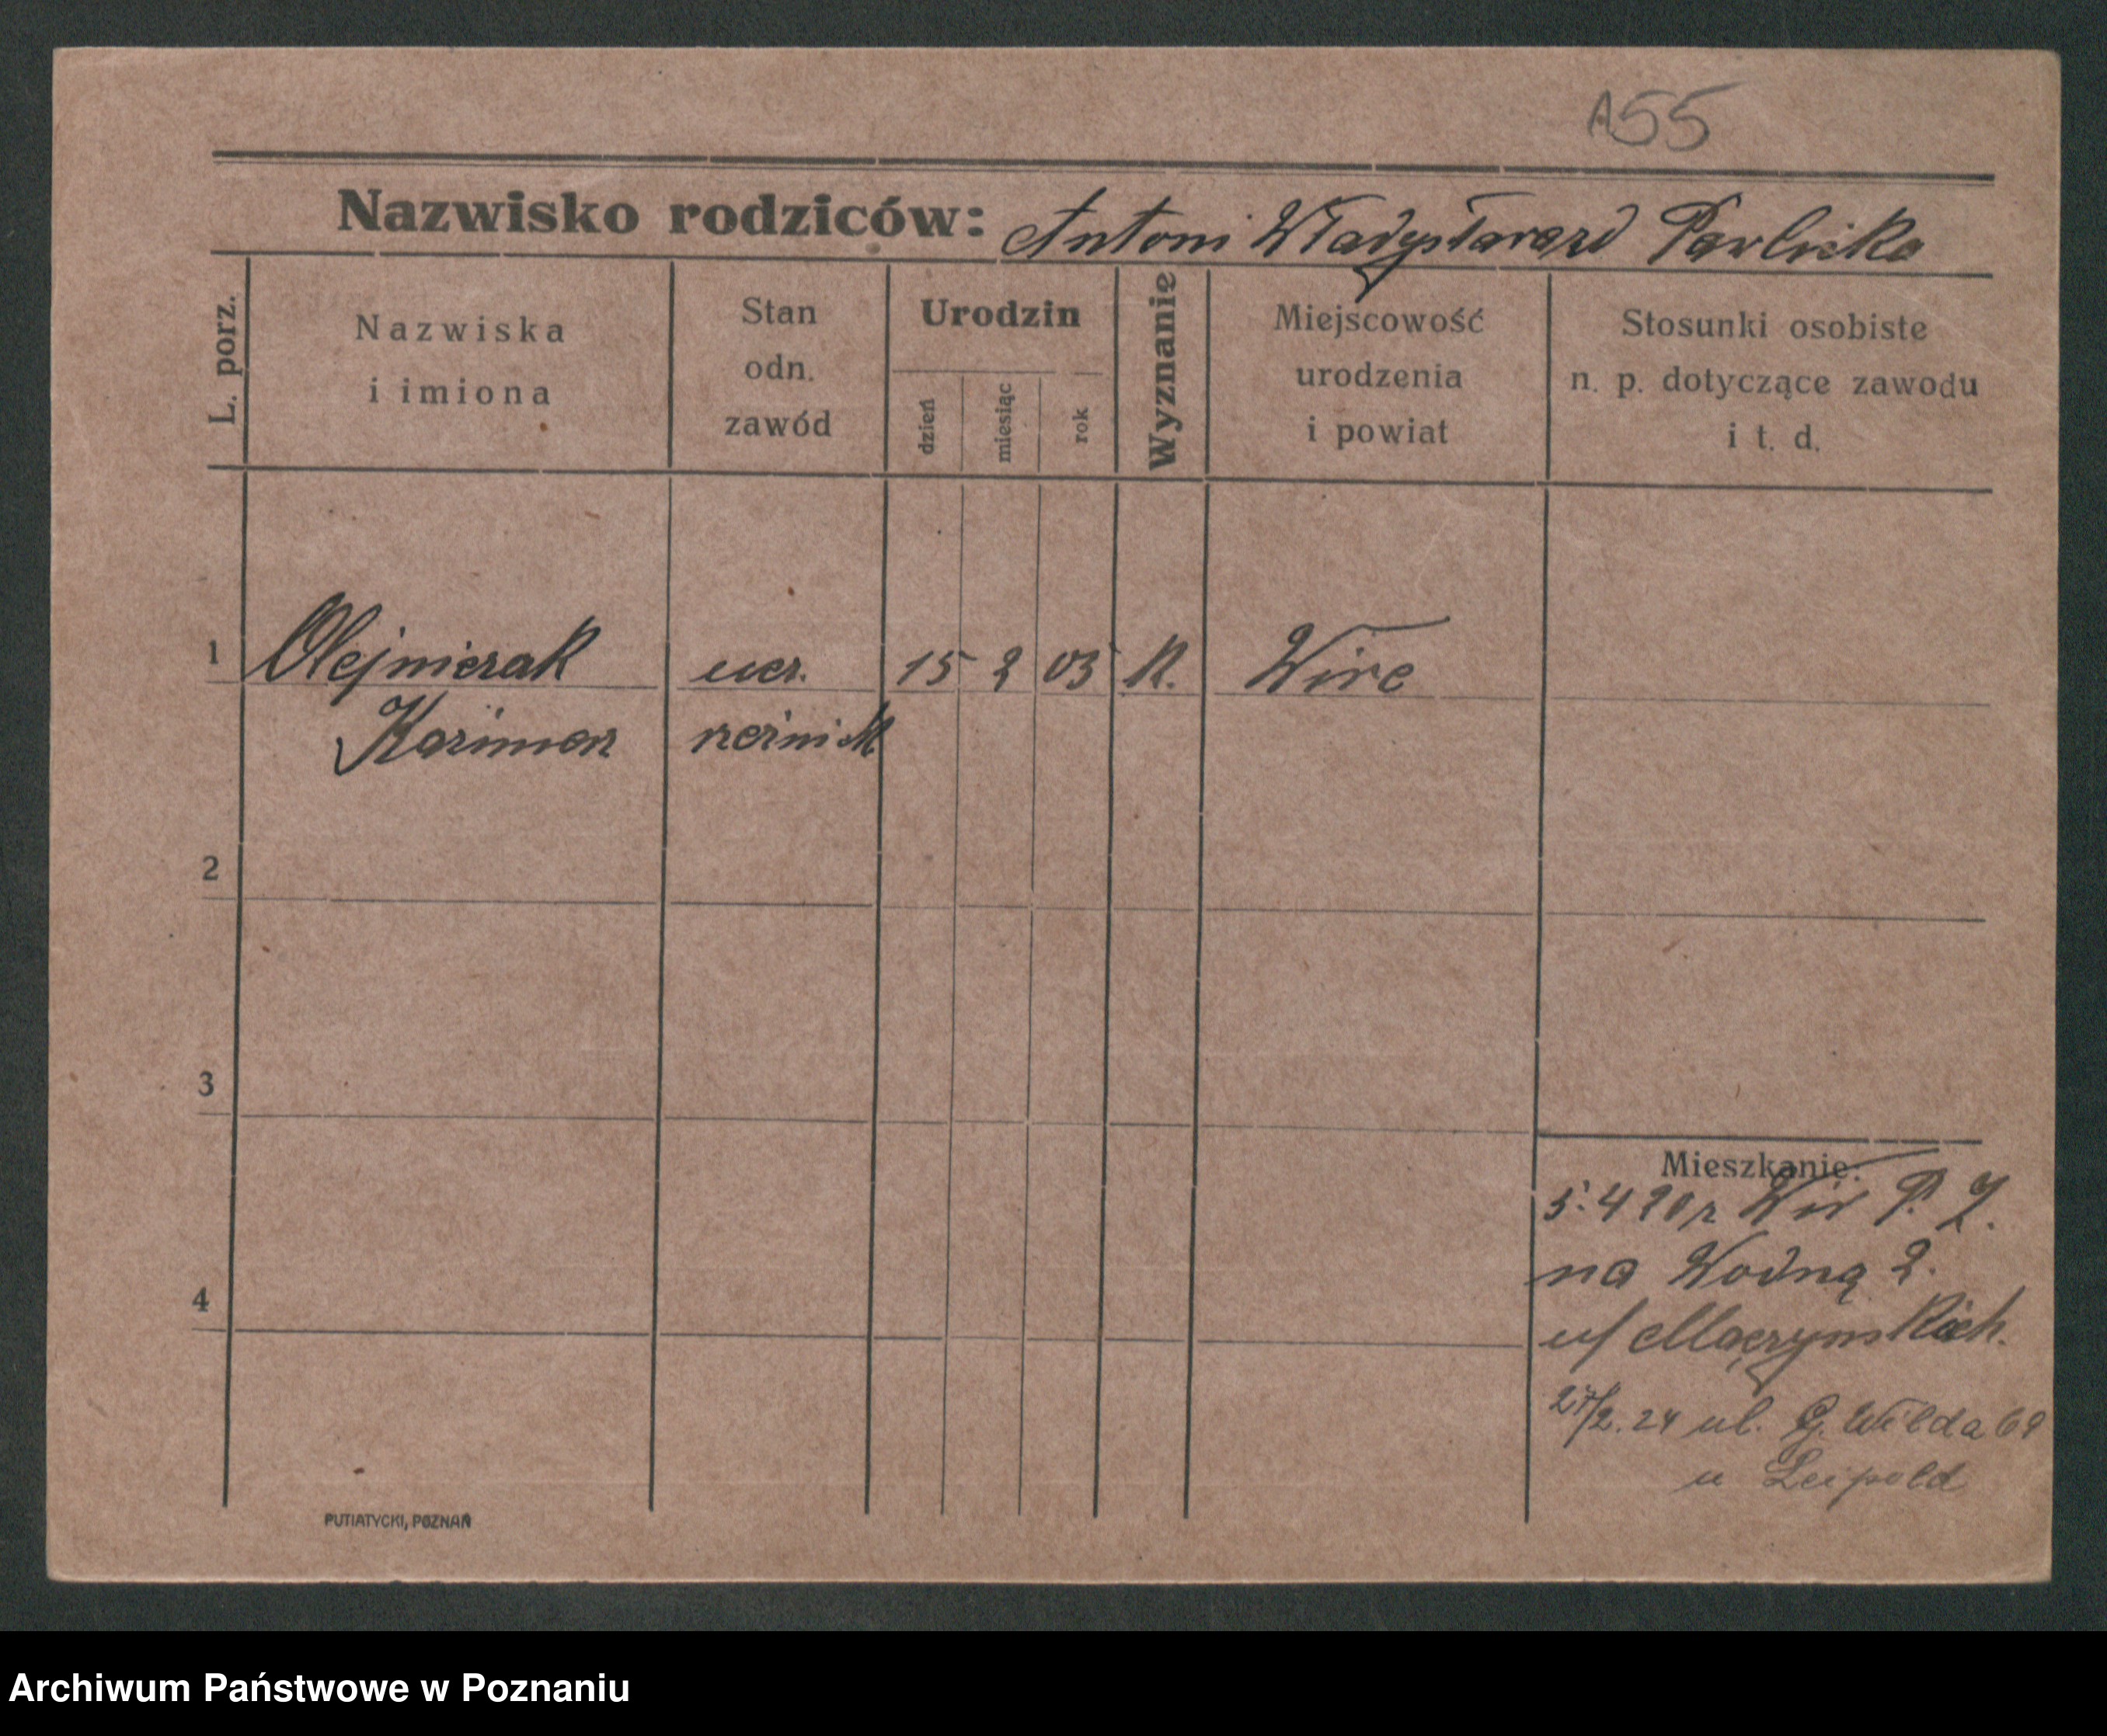 A55
Nazwisko rodziców: Antoni Władysława zd Pawlicka
L. porz.
Nazwiska
i imiona
Stan
odn.
zawód
Urodzin
dzień
miesiąc
rok
Wyznanie
Miejscowość
urodzenia
i powiat
Stosunki osobiste
n. p. dotyczące zawodu
i t. d.
1 Olejniczak ucz. 15 2 05 K. Wire
Kazimierz rzeźnick
2
3
4
Mieszkanie:
5.4 20 r Wir P. Z.
na Wodną 2.
u/ Mączyńskich.
27/2. 24 ul. G. Wilda 69
u Leipold
PUTIATYCKI, POZNAŃ
Archiwum Państwowe w Poznaniu